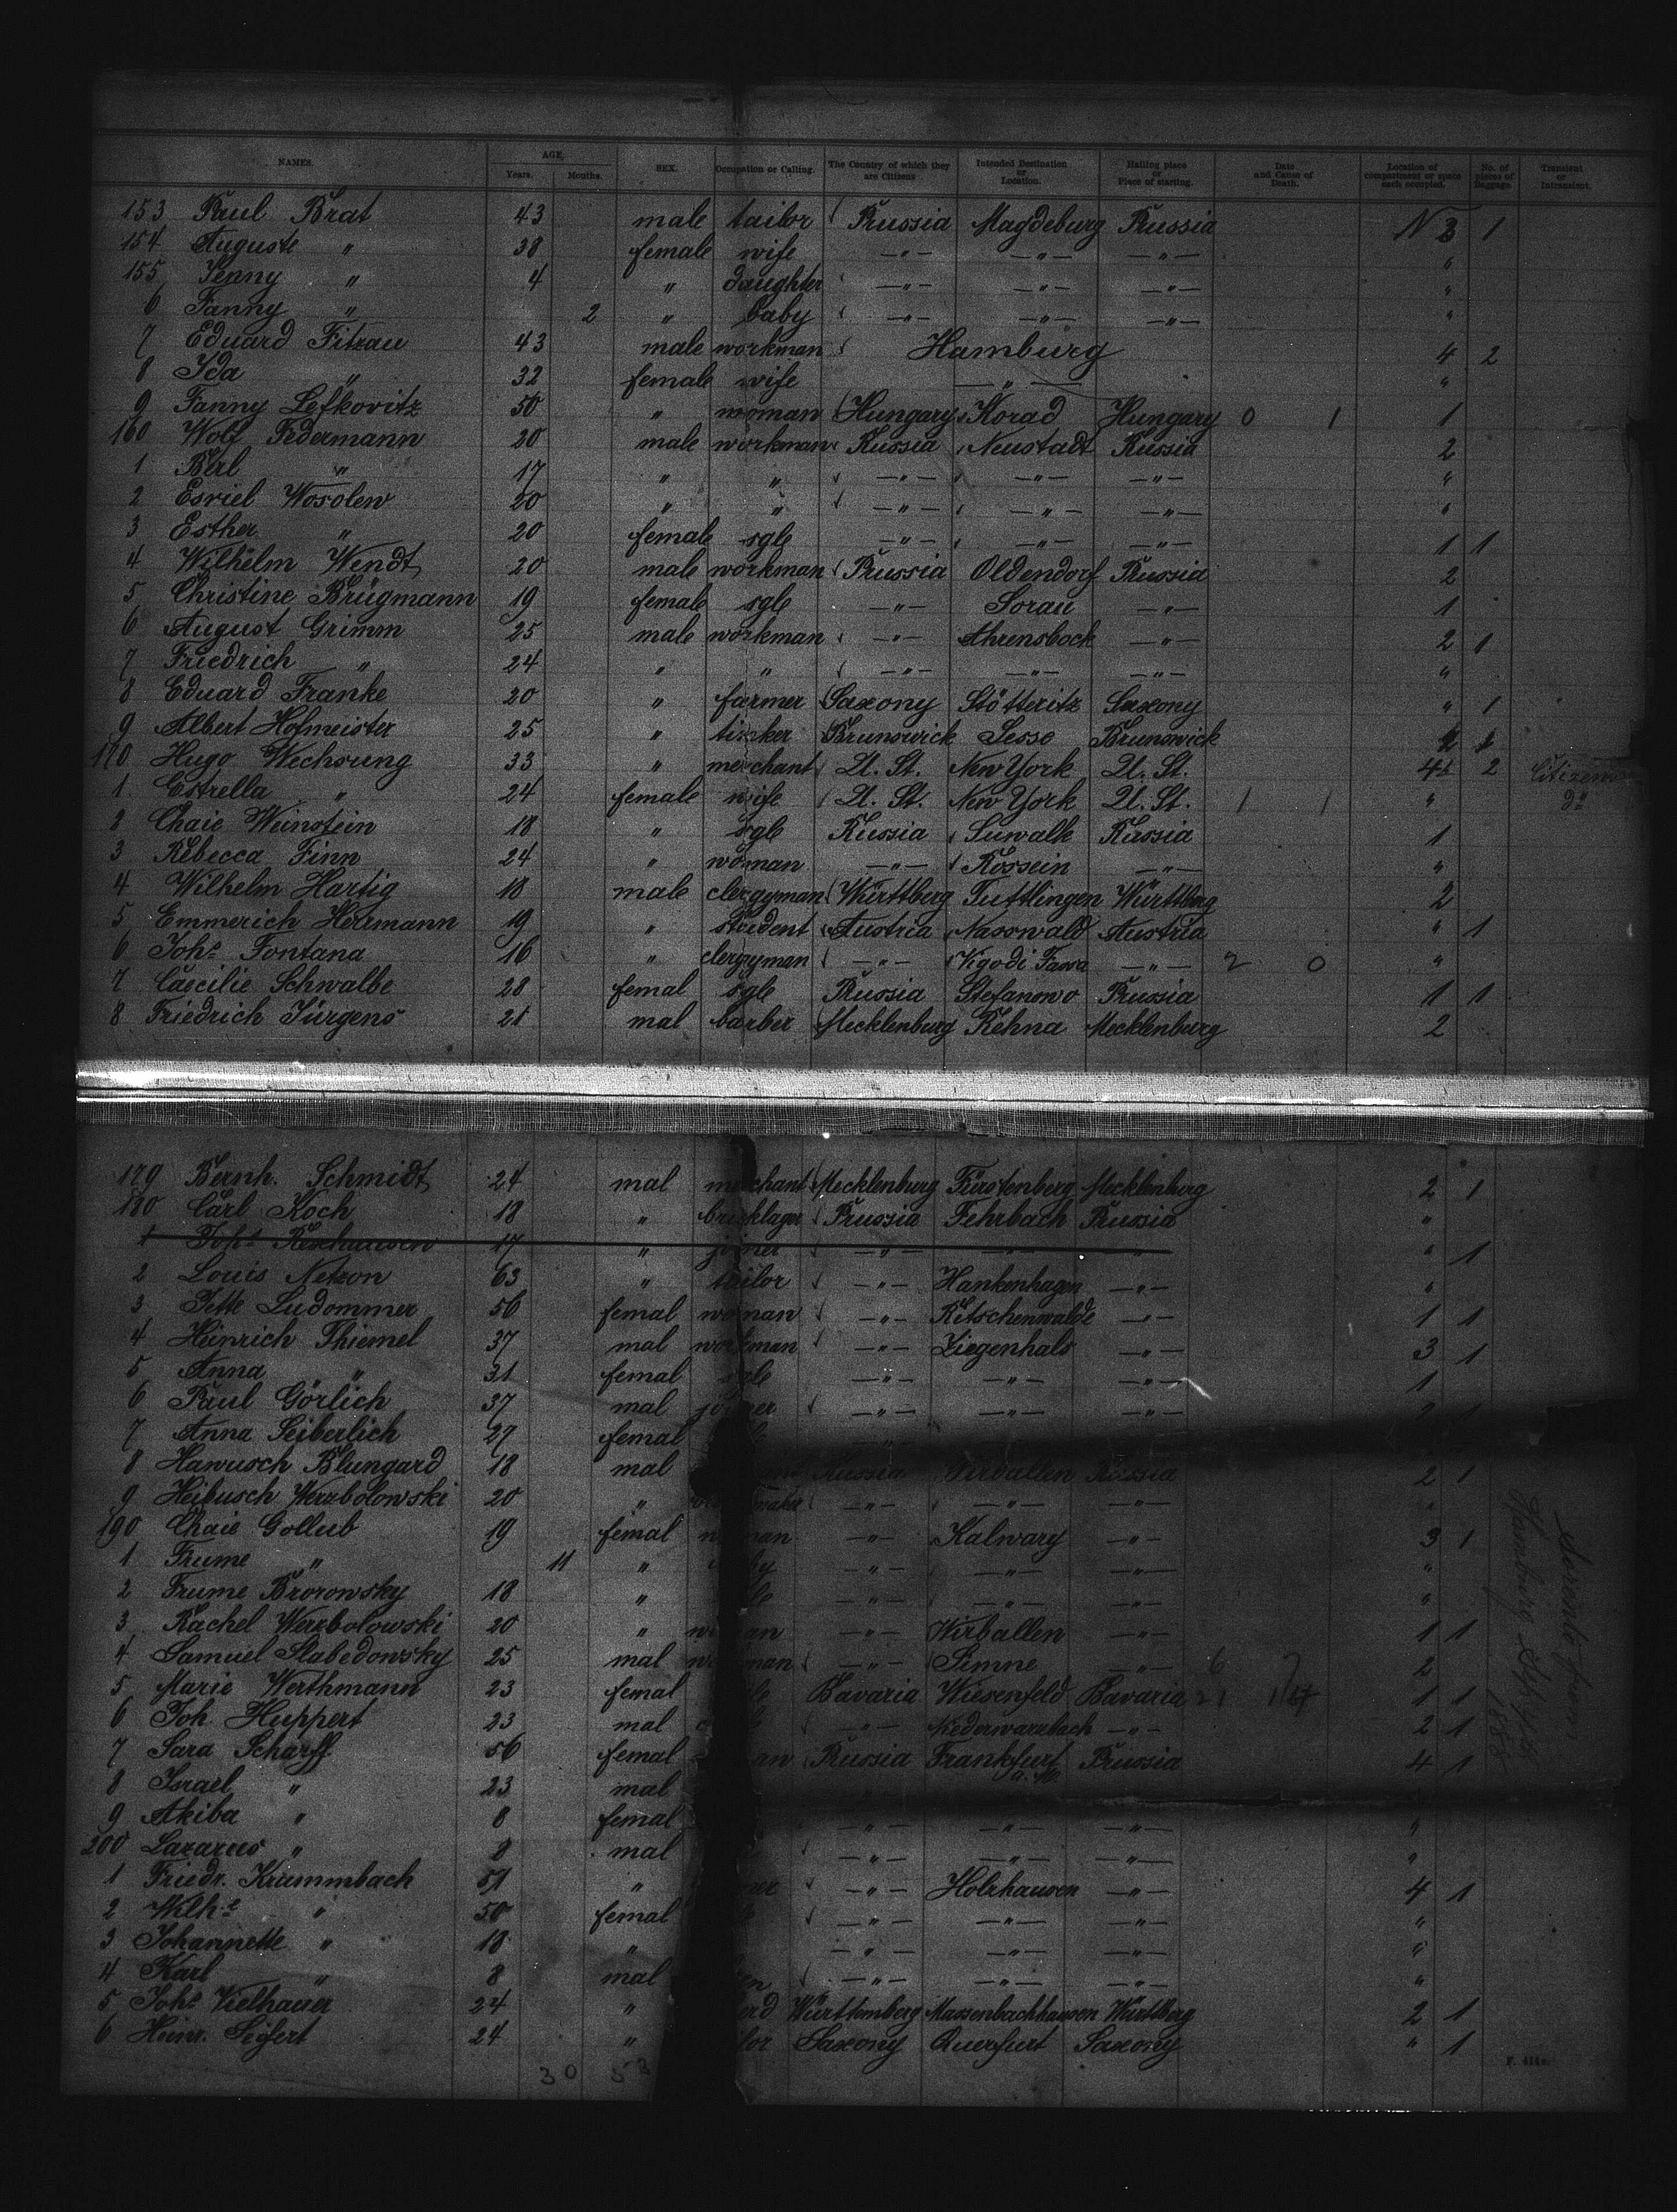 NAMES. AGE, Years. Months. SEX. Occupation or Calling. The Country of which they are Citizens Intended Destination or Location. Halting place or Place of starting. Date and Cause of Death. Location of compartment or space each occupied. No. of pieces of Baggage. Transient or Intransient.
153 Paul Brat 43 male tailor Prussia Magdeburg Prussia N 3 1
154 Auguste " 38 female wife —"— —"— —"— "
155 Jenny " 4 " daughter —"— —"— —"— "
6 Fanny " 2 " baby —"— —"— —"— "
7 Eduard Fitzau 43 male workman Hamburg 4 2
8 Ida " 32 female wife —"— "
9 Fanny Lefkovitz 50 " woman Hungary Korad Hungary 0 1 1
160 Wolf Federmann 20 male workman Russia Neustadt Russia 2
1 Berl " 17 " " —"— —"— —"— "
2 Esriel Wosolew 20 " " —"— —"— —"— "
3 Esther " 20 female sgle —"— —"— —"— 1 1
4 Wilhelm Wendt 20 male workman Prussia Oldendorf Prussia 2
5 Christine Brügmann 19 female sgle —"— Sorau —"— 1
6 August Grimm 25 male workman —"— Ahrensbock —"— 2 1
7 Friedrich " 24 " " —"— —"— —"— "
8 Eduard Franke 20 " farmer Saxony Stötteritz Saxony " 1
9 Albert Hofmeister 25 " tinker Brunswick Sesse Brunswick 2 1
170 Hugo Wechsung 33 " merchant U. St. New York U. St. 4 2 Citizens
1 Estrella " 24 female wife U. St. New York U. St. 1 1 " do
2 Chaie Weinstein 18 " sgle Russia Suwalk Russia 1
3 Rebecca Finn 24 " woman —"— Rossein —"— "
4 Wilhelm Hartig 18 male clergyman Württberg Tuttlingen Württberg 2
5 Emmerich Herrmann 19 " student Austria Nasswald Austria " 1
6 Johs Fontana 16 " clergyman —"— Vigodi Fassa —"— 2 0 "
7 Caecilie Schwalbe 28 femal sgle Prussia Stefanowo Prussia 1 1
8 Friedrich Jürgens 21 mal barber Mecklenburg Rehna Mecklenburg 2
179 Bernh. Schmidt 24 mal merchant Mecklenburg Fürstenberg Mecklenburg 2 1
180 Carl Koch 18 " bricklager Prussia Fehrbach Prussia "
1 Johs 17 " joiner —"— —"— " " 1
2 Louis Netzon 63 " tailor —"— Hankenhagen —"— "
3 Jette Ludommer 56 femal woman —"— Ritschenwalde —"— 1 1
4 Heinrich Thiemel 37 mal workman —"— Ziegenhals —"— 3 1
5 Anna " 31 femal sgle —"— —"— —"— 1
6 Paul Görlich 37 mal joiner —"— —"— —"— 2 1
7 Anna Seiberlich 27 femal
8 Hawusch Blungard 18 mal Russia Russia 2 1
9 Heibusch Werzbolowski 20 " —"— —"— —"— "
190 Chaie Gollub 19 femal —"— Kalwary —"— 3 1
1 Frume " 11 " —"— —"— —"— "
2 Frume Brorowsky 18 " —"— —"— —"— "
3 Rachel Werzbolowski 20 " —"— Wirballen —"— 1 1
4 Samuel Slabedowsky 25 mal —"— Simne —"— 6 2
5 Marie Werthmann 23 femal Bavaria Wiesenfeld Bavaria 21 1 1
6 Joh. Huppert 23 mal —"— Niederwarzbach —"— 2 1
7 Sara Scharff 56 femal Prussia Frankfurt a. M. Prussia 4 1
8 Israel " 23 mal
9 Akiba " 8 femal —"— —"— —"— "
200 Lazarus " 9 mal —"— —"— —"— "
1 Friedr. Krummbach 51 " —"— Holzhausen —"— 4 1
2 Wilhe " 50 femal —"— —"— —"— "
3 Johannette " 18 " —"— —"— —"— "
4 Karl " 8 mal —"— —"— —"— "
5 Johs Vielhauer 24 " Württemberg Massenbachhausen Württberg 2 1
6 Heinr. Seifert 24 " Saxony Querfurt Saxony " 1
30 53